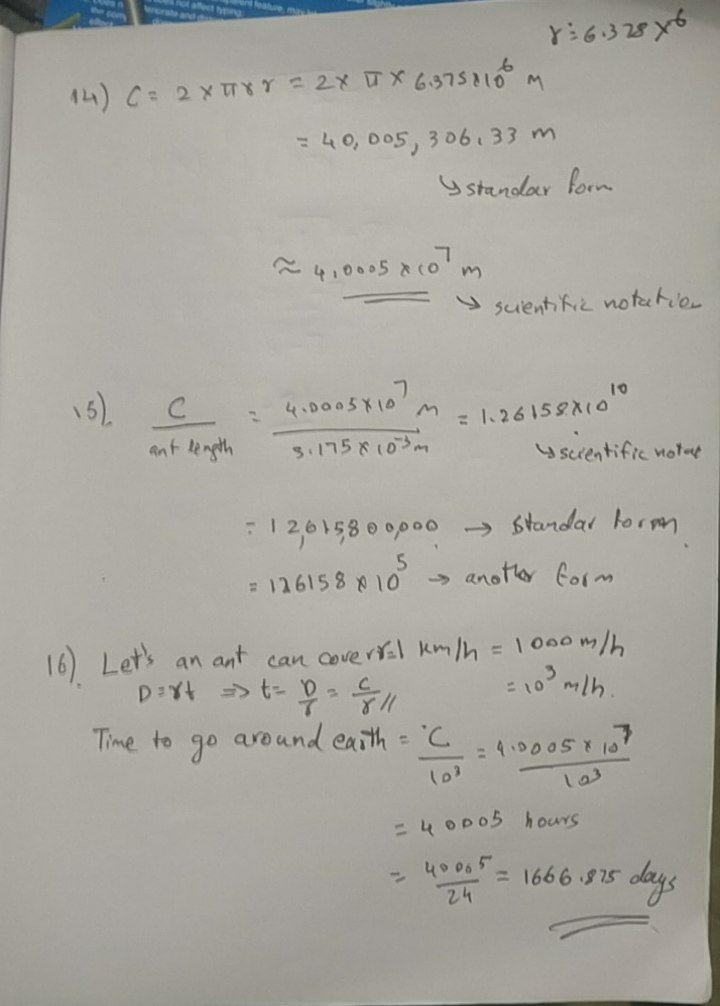 not affect typing.
r = 6.378 x 6
14) C = 2 x π x r = 2 x π x 6.375 x 10^6 m
= 40,005,306.33 m
↳ standar form
≈ 4.0005 x 10^7 m
↳ scientific notation
15) C / ant length = 4.0005 x 10^7 m / 3.175 x 10^-3 m = 1.26158 x 10^10
↳ scientific notat
= 12,615,800,000 → standar form
= 126158 x 10^5 → another form
16) Let's an ant can cover r=1 km/h = 1000 m/h
D = rt ⇒ t = D/r = C/r // = 10^3 m/h.
Time to go around earth = C / 10^3 = 4.0005 x 10^7 / 10^3
= 40005 hours
= 40005 / 24 = 1666.875 days